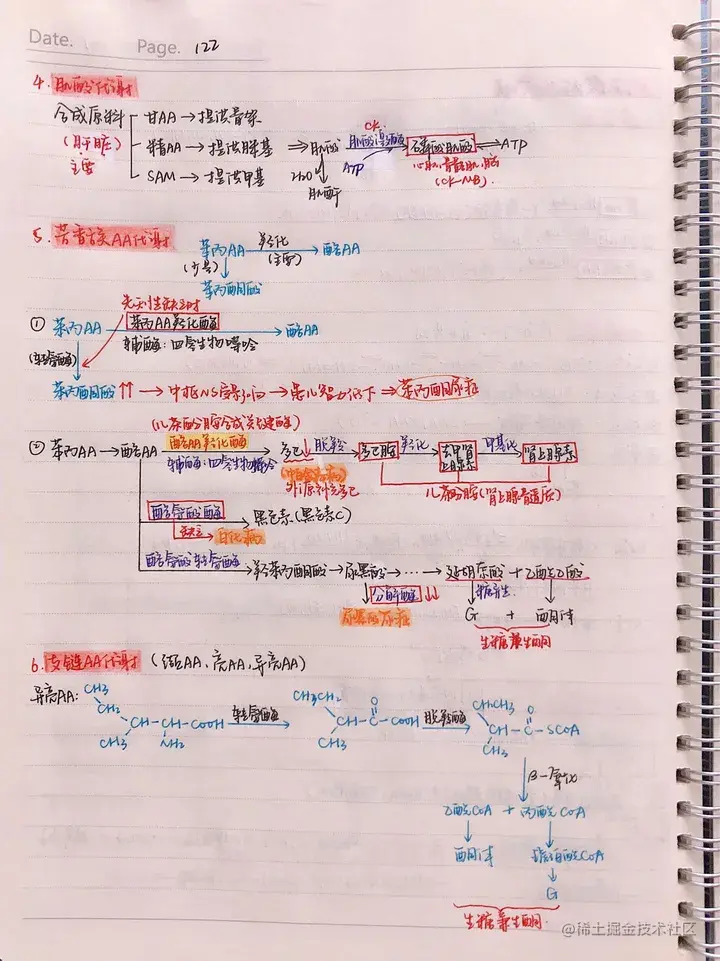 Date. Page. 122
4. 肌酸代谢
合成原料 甘AA → 提供骨架
(肝脏) 精AA → 提供脒基 ⇒ 肌酸 肌酸激酶 CK 磷酸肌酸 ⇌ ATP
主要 SAM → 提供甲基 H2O ATP 心肌,骨骼肌,脑
肌酐 (CK-MB)
5. 芳香族AA代谢
苯丙AA 羟化 (主要) → 酪AA
(少量)
苯丙酮酸
先天性缺乏时
① 苯丙AA 苯丙AA羟化酶 → 酪AA
(转氨酶) 辅酶:四氢生物喋呤
苯丙酮酸↑↑ → 中枢NS → 患儿智力低下 → 苯丙酮尿症
(儿茶酚胺合成关键酶)
② 苯丙AA → 酪AA 酪AA羟化酶 多巴 脱羧 多巴胺 羟化 去甲肾上腺素 甲基化 肾上腺素
辅酶:四氢生物喋呤
外源补充多巴 儿茶酚胺(肾上腺髓质)
酪氨酸酶 → 黑色素
缺乏 白化病
酪氨酸转氨酶 → 羟苯丙酮酸 → 尿黑酸 → …… → 延胡索酸 + 乙酰乙酸
分解酶↓↓ 糖异生
尿黑酸尿症 G + 酮体
生糖兼生酮
6. 支链AA代谢 (缬AA、亮AA、异亮AA)
异亮AA: CH3 CH2 CH-CH-COOH CH3 NH2 转氨酶 CH3CH2 CH-C-COOH CH3 O 脱羧酶 CH3CH2 CH-C-SCOA CH3 O
β-氧化
乙酰COA + 丙酰COA
酮体 琥珀酰COA
G
生糖兼生酮
@稀土掘金技术社区